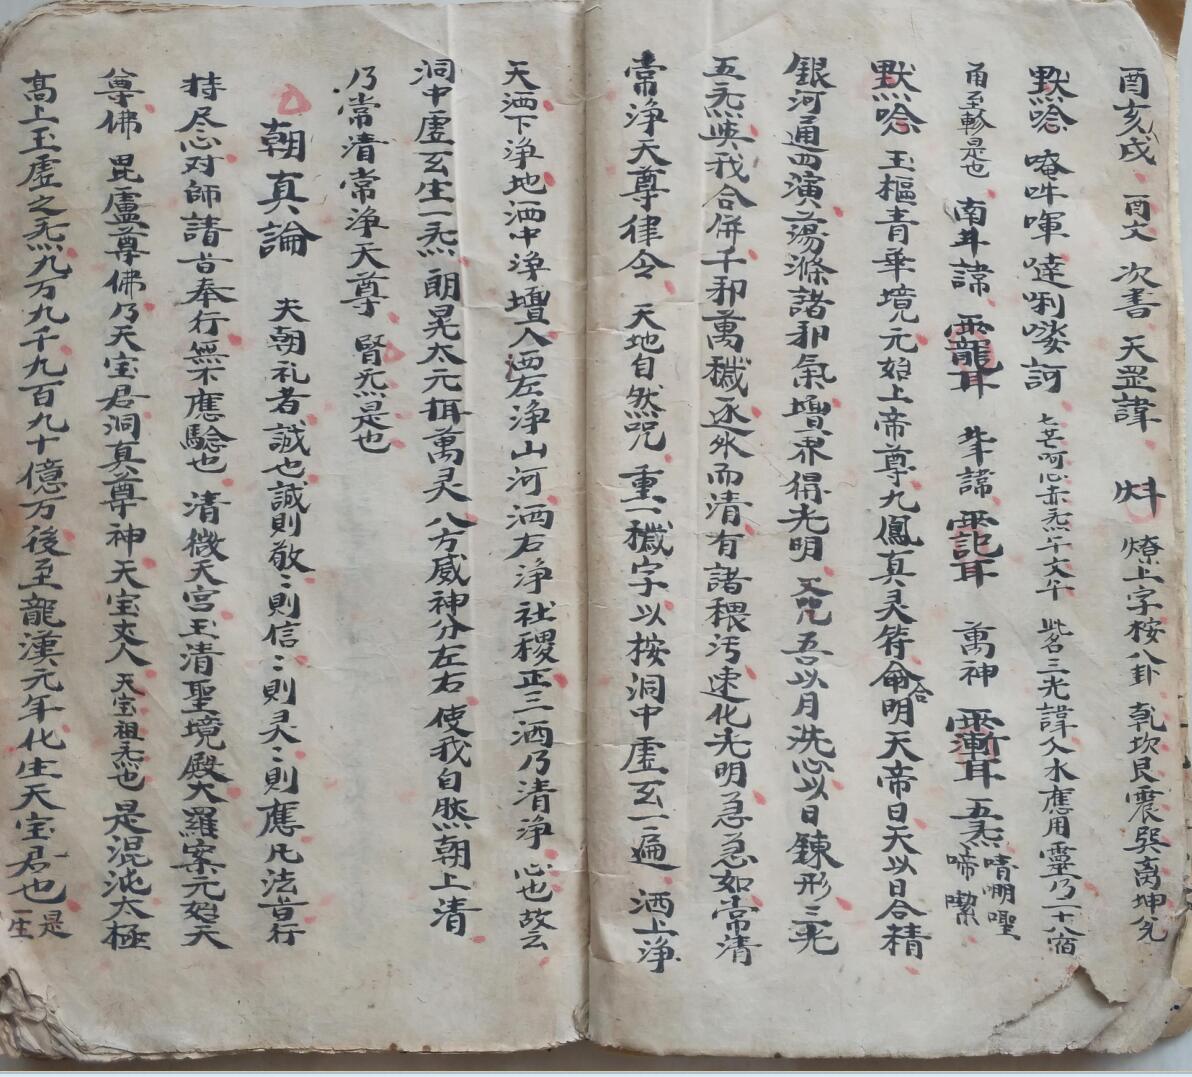 酉亥戌 酉文 次書 天罡諱 燎上字按八卦 乾坎艮震巽离坤兌
默唸 唵吽㖇噠唎㗚訶 七芒呵心赤炁午文午 此名三光諱入水應用靈乃二十八宿
甬至軫是也 南斗諱 諱 萬神 五炁
默唸 玉樞青華境元始上帝尊九鳳真灵符侖合明天帝日天以日合精
銀河通四演蕩滌諸和氣壇界得光明 咒 吾以月洗心以日鍊形三光
五炁與我合併千和萬穢逐水而清有諸穢污速化光明急急如常清
常淨天尊律令 天地自然咒 重一穢字以按洞中虛玄一遍 洒上淨
天洒下淨地洒中淨壇入洒左淨山河洒右淨社稷正三洒乃清淨心也故云
洞中虛玄生一炁朗晃太元柤萬灵八方威神分左右使我自然朝上清
乃常清常淨天尊 腎炁是也
朝真論 夫朝礼者誠也誠則敬:則信:則灵:則應凡法旨行
持尽心对師請旨奉行無不應驗也 清微天宮玉清聖境殿大羅案元始天
尊佛 毘盧尊佛乃天宝君洞真尊神天宝丈人天宝祖炁也 是混沌太極
高上玉虛之炁九万九千九百九十億万後至龍漢元年化生天宝君也 是一生